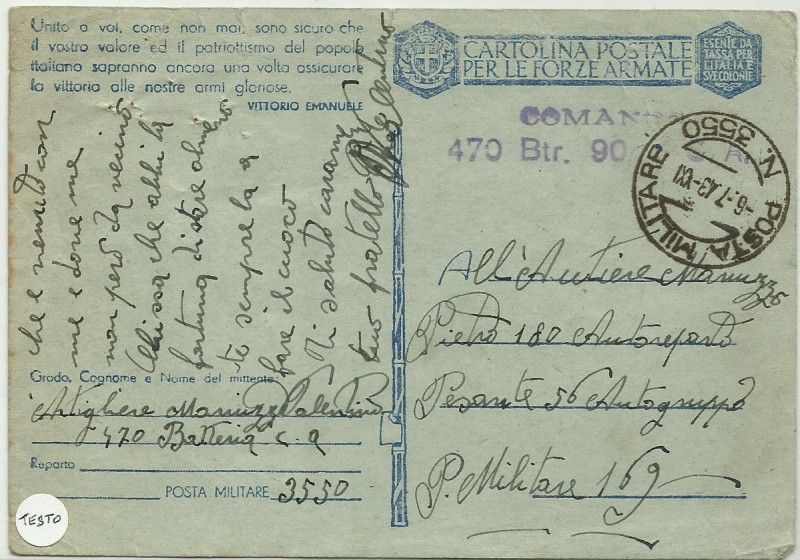 Unito a voi, come non mai, sono sicuro che
il vostro valore ed il patriottismo del popolo
italiano sapranno ancora una volta assicurare
la vittoria alle nostre armi gloriose.
VITTORIO EMANUELE
CARTOLINA POSTALE
PER LE FORZE ARMATE
ESENTE DA
TASSA PER
L'ITALIA E
SVE COLONIE
COMAN
470 Btr. 90
POSTA MILITARE N. 3550
-6-7.43-XXI
che e venuto con
me e dove me
non però da vicino
Chissà che abbi la
fortuna di stare
te sempre la a
fare il cuoco
Ti saluto caram
tuo fratello
Valentino
Grado, Cognome e Nome del mittente:
Artigliere Maruzzo Valentino
470 Batteria c. a
Reparto
POSTA MILITARE 3550
All'Autiere Maruzzo
Pietro 180 Autoreparto
Pesante 56 Autogruppo
P. Militare 169
TESTO